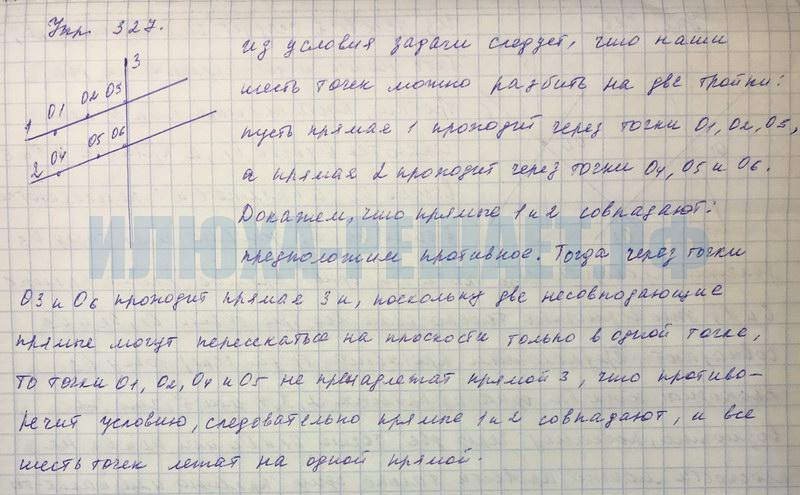 Упр. 327.
из условия задачи следует, что наши
шесть точек можно разбить на две тройки:
пусть прямая 1 проходит через точки О1, О2, О3,
а прямая 2 проходит через точки О4, О5 и О6.
Докажем, что прямые 1 и 2 совпадают:
предположим противное. Тогда через точки
О3 и О6 проходит прямая 3 и, поскольку две несовподающие
прямые могут пересекаться на плоскости только в одной точке,
то точки О1, О2, О4 и О5 не принадлежат прямой 3, что противо-
речит условию, следовательно прямые 1 и 2 совпадают, и все
шесть точек лежат на одной прямой.
3
1 О1 О2 О3
2 О4 О5 О6
ИЛЮХА-РЕШАЕТ.РФ